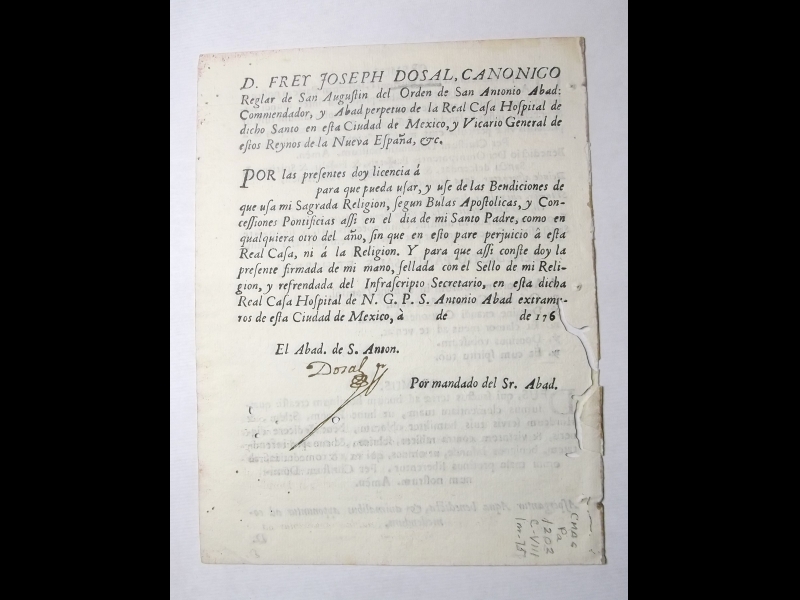 D. FREY JOSEPH DOSAL, CANONIGO
Reglar de San Auguſtin del Orden de San Antonio Abad:
Commendador, y Abad perpetuo de la Real Caſa Hoſpital de
dicho Santo en eſta Ciudad de Mexico, y Vicario General de
eſtos Reynos de la Nueva Eſpaña, &c.
POR las preſentes doy licencia á
para que pueda uſar, y uſe de las Bendiciones de
que uſa mi Sagrada Religion, ſegun Bulas Apoſtolicas, y Con-
ceſſiones Pontificias aſſi en el dia de mi Santo Padre, como en
qualquiera otro del año, ſin que en eſto pare perjuicio â eſta
Real Caſa, ni á la Religion. Y para que aſſi conſte doy la
preſente firmada de mi mano, ſellada con el Sello de mi Reli-
gion, y refrendada del Infraſcripto Secretario, en eſta dicha
Real Caſa Hoſpital de N. G. P. S. Antonio Abad extramu-
ros de eſta Ciudad de Mexico, à de de 176
El Abad. de S. Anton.
Dosal
Por mandado del Sr. Abad.
CMAG
Pa
1202
C-VIII